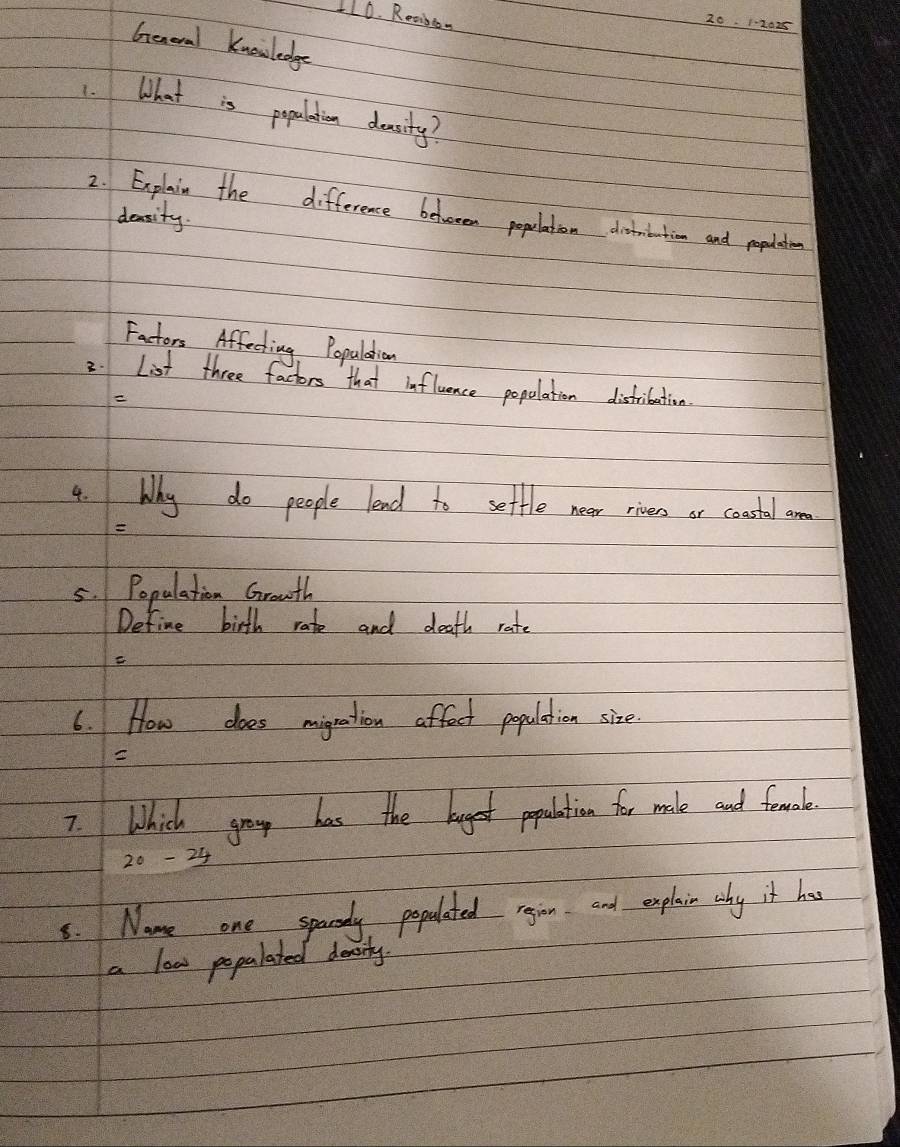 1.10. Revision
20-1-2025
General Knowledge
1. What is population density?
2. Explain the difference between population distribution and population
density.
Factors Affecting Population
3. List three factors that influence population distribution.
=
4. Why do people tend to settle near rivers or coastal area.
=
5. Population Growth
Define birth rate and death rate
=
6. How does migration affect population size.
=
7. Which group has the largest population for male and female.
20 - 24
8. Name one sparsely populated region and explain why it has
a low populated density.